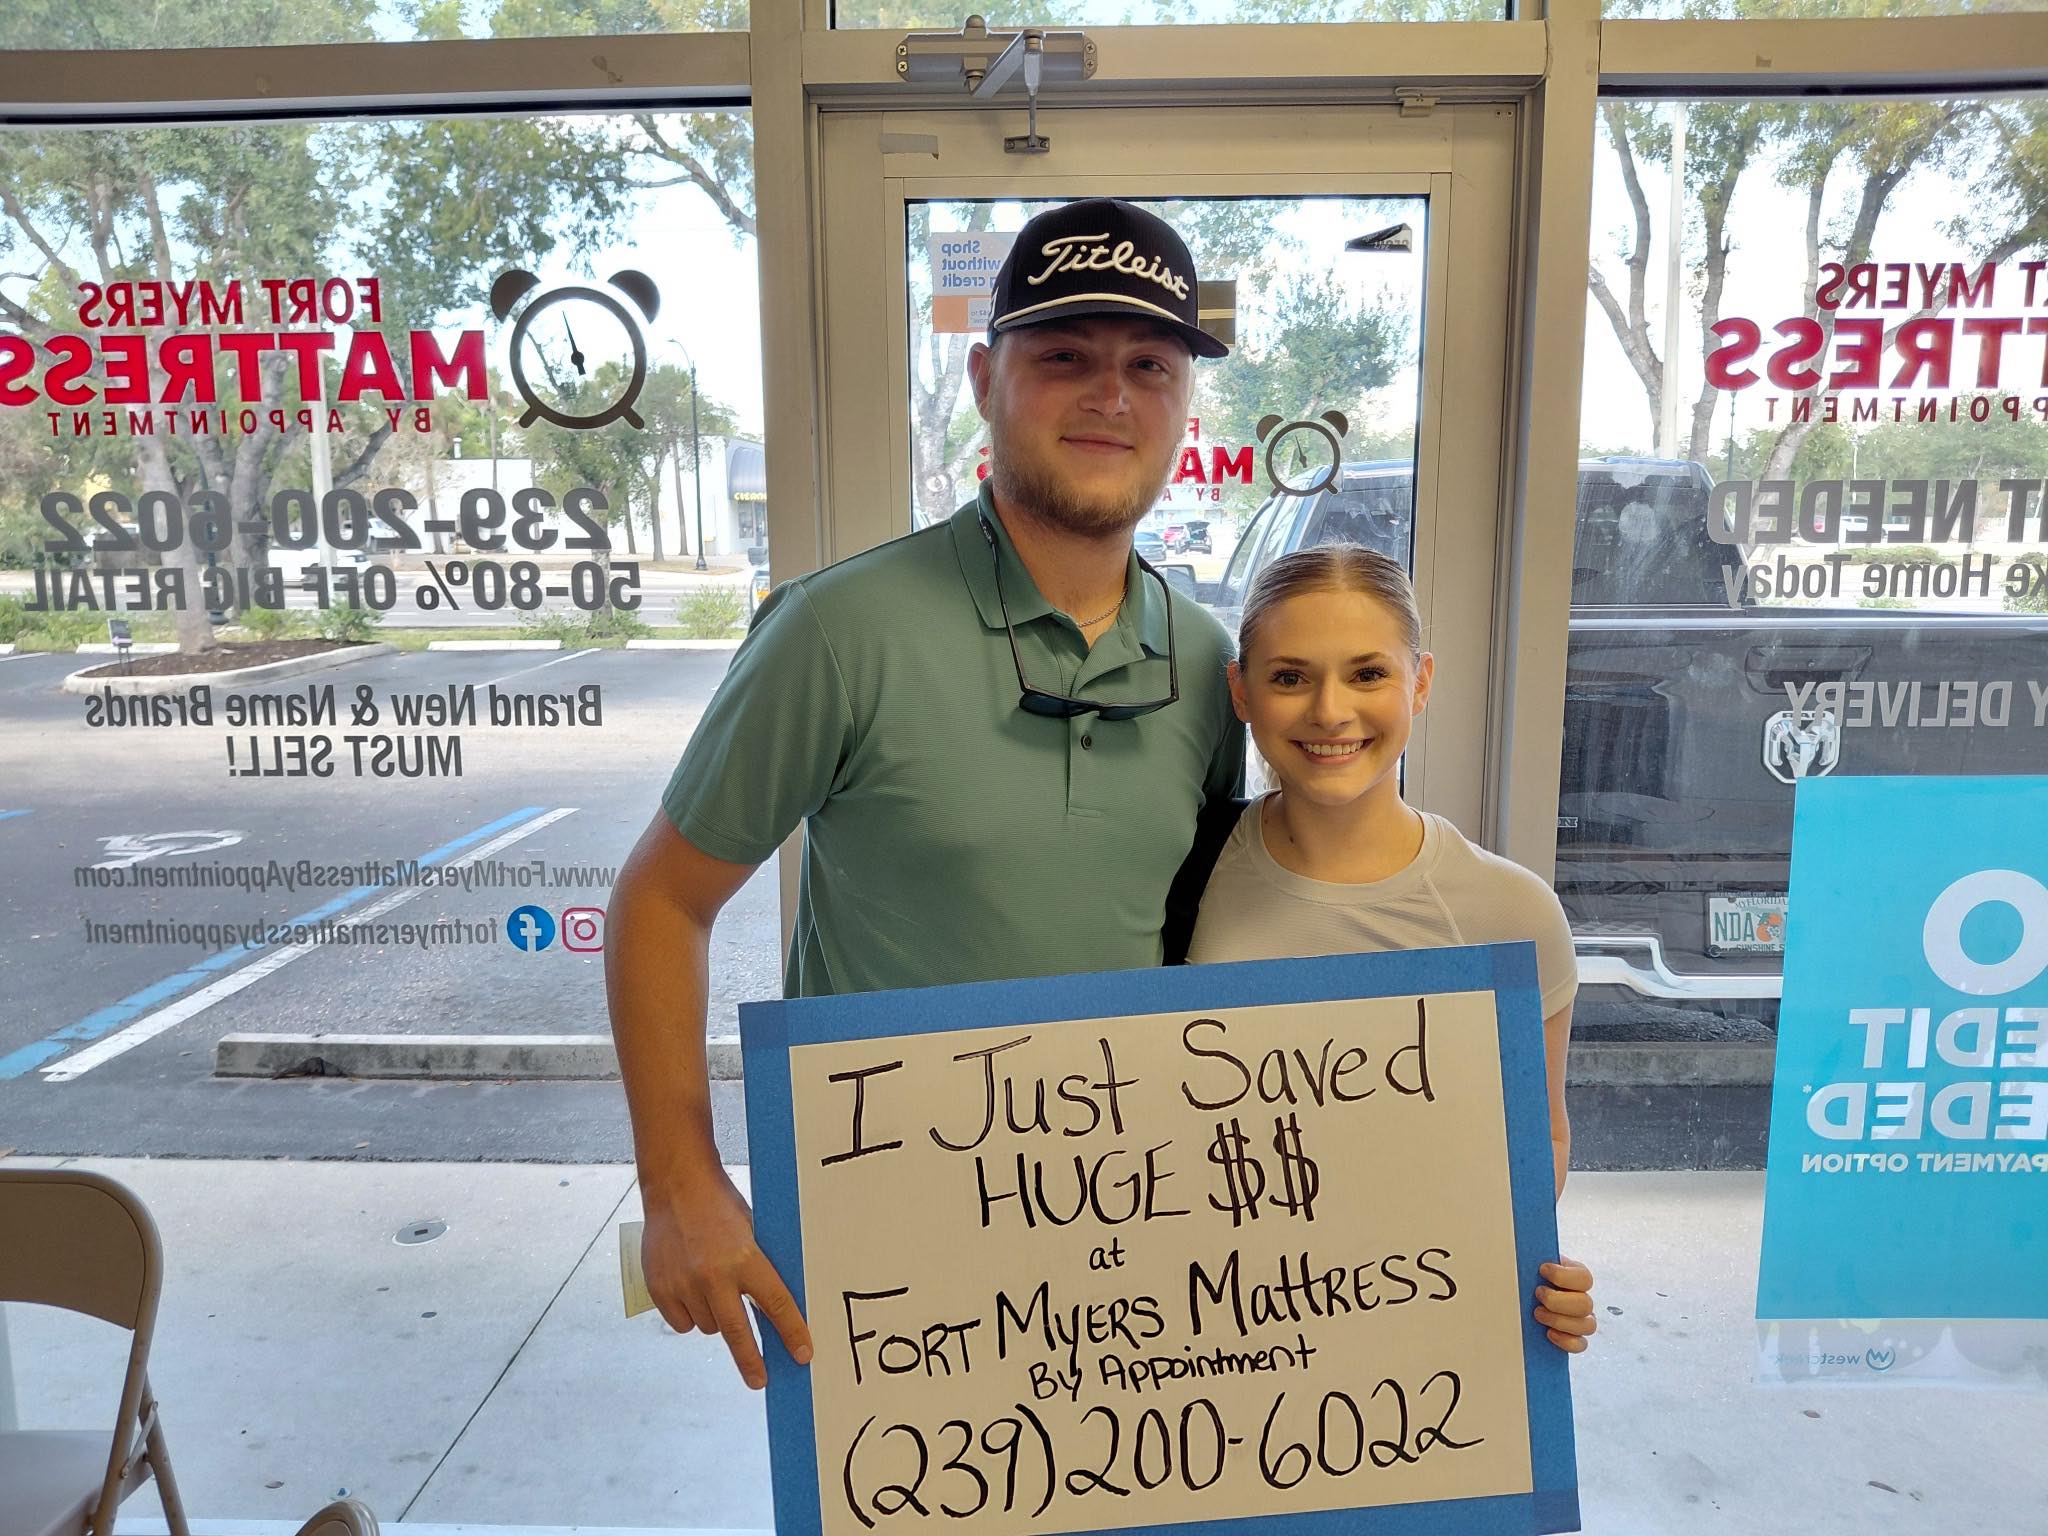 FORT MYERS
MATTRESS
BY APPOINTMENT
239-200-6022
50-80% OFF BIG RETAIL
Brand New & Name Brands
MUST SELL!
www.FortMyersMattressByAppointment.com
fortmyersmattressbyappointment
Shop
without
credit
Titleist
MA
BY A
RT MYERS
TTRESS
PPOINTMENT
T NEEDED
ke Home Today
Y DELIVERY
MYFLORIDA
NDA
SUNSHINE S
O
EDIT
EDED*
PAYMENT OPTION
westcreek
I Just Saved
HUGE $$
at
FORT MYERS MATTRESS
By Appointment
(239) 200-6022